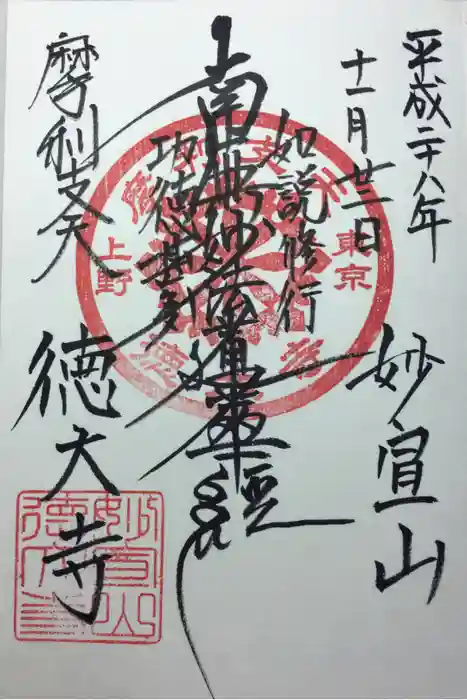 平成二十八年
十一月廿三日
妙宣山
如説修行
南無妙法蓮華經
功徳甚多
摩利支天
徳大寺
東京
上野